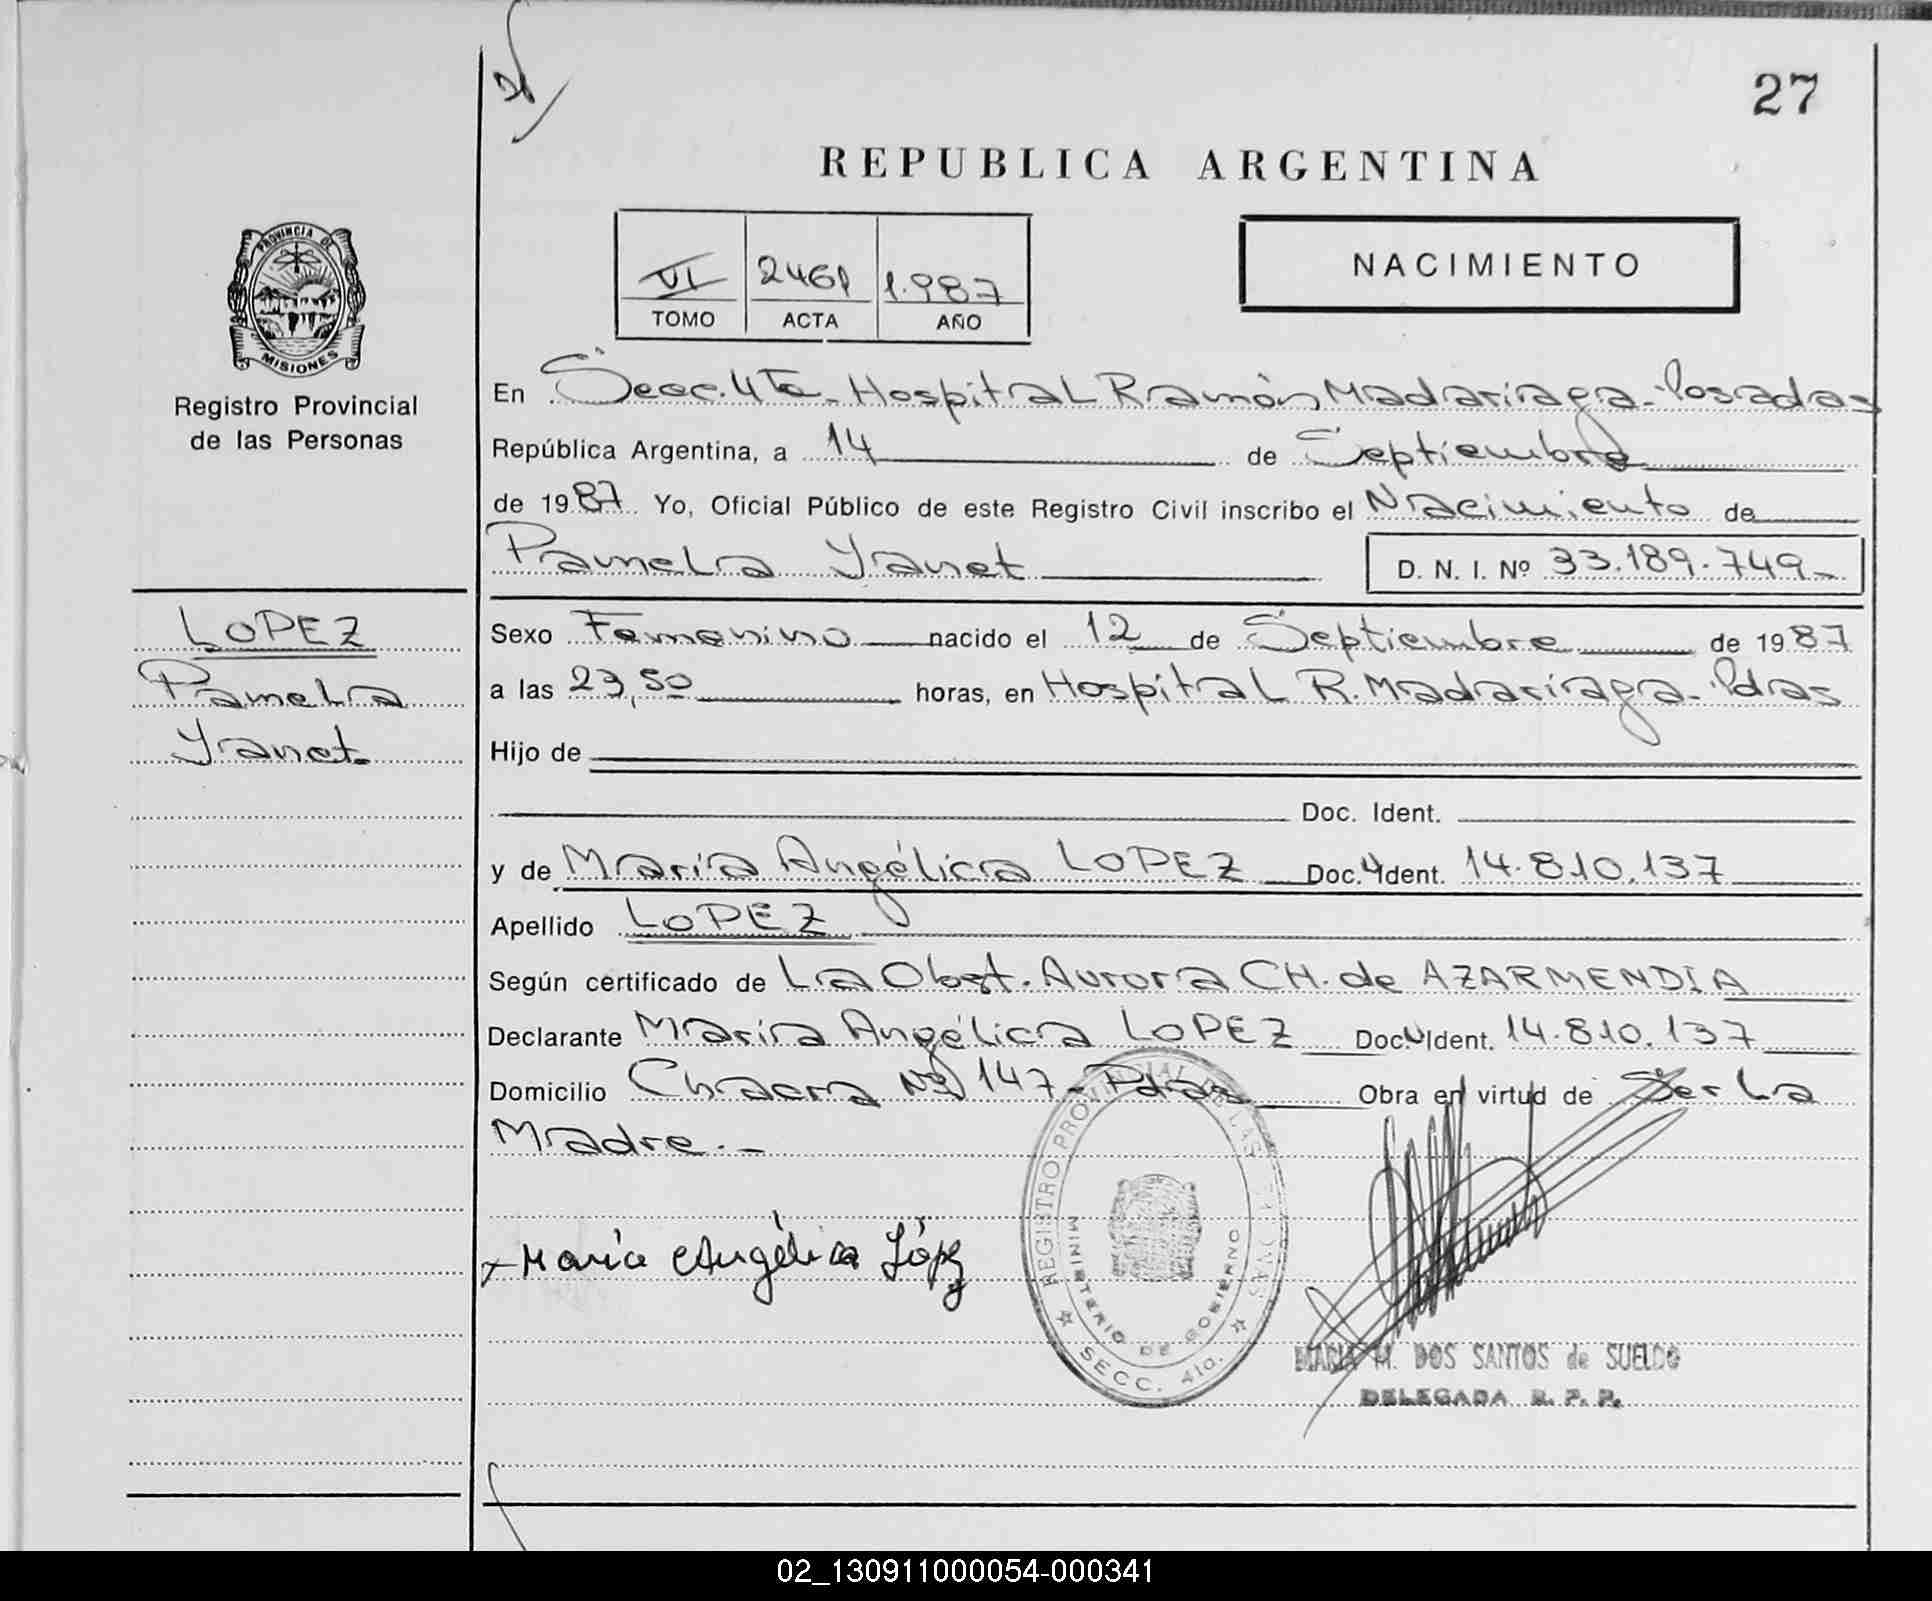 27
REPUBLICA ARGENTINA
PROVINCIA DE
MISIONES
Registro Provincial
de las Personas
VI 2461 1.987
TOMO ACTA AÑO
NACIMIENTO
En Secc. 4ta - Hospital Ramón Madariaga - Posadas
República Argentina, a 14 de Septiembre
de 1987 Yo, Oficial Público de este Registro Civil inscribo el Nacimiento de
Pamela Yanet D. N. I. Nº 33.189.749-
LOPEZ
Pamela
Yanet.
Sexo Femenino nacido el 12 de Septiembre de 1987
a las 23,50 horas, en Hospital R. Madariaga - Pdas
Hijo de
Doc. Ident.
y de María Angélica LOPEZ Doc. Ident. 14.810.137
Apellido LOPEZ
Según certificado de La Obst. Aurora CH. de AZARMENDIA
Declarante María Angélica LOPEZ Doc. Ident. 14.810.137
Domicilio Chacra Nº 147 - Pdas Obra en virtud de Ser La
Madre.-
María Angélica López
REGISTRO PROVINCIAL DE LAS PERSONAS
MINISTERIO DE GOBIERNO
SECC. 4ta.
MARIA M. DOS SANTOS de SUELDO
DELEGADA R. P. P.
02_130911000054-000341